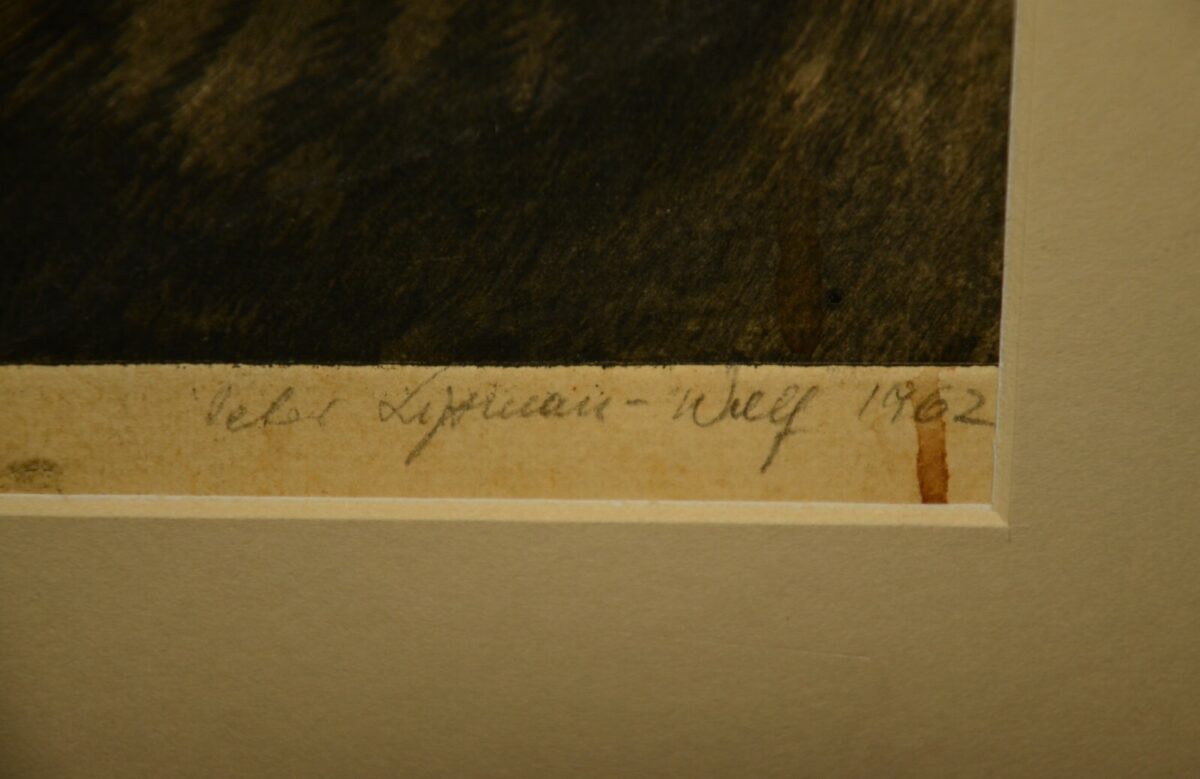 Peter Lipman-Wulf 1962